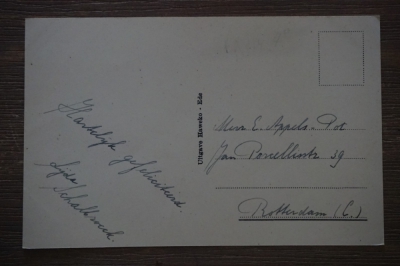 Hartelijk gefeliciteerd.
Lyda
Schalkwijk.
Uitgave Hawako - Ede
Mevr. E. Appels-Pot
Jan Porcellisstr 39
Rotterdam (C.)